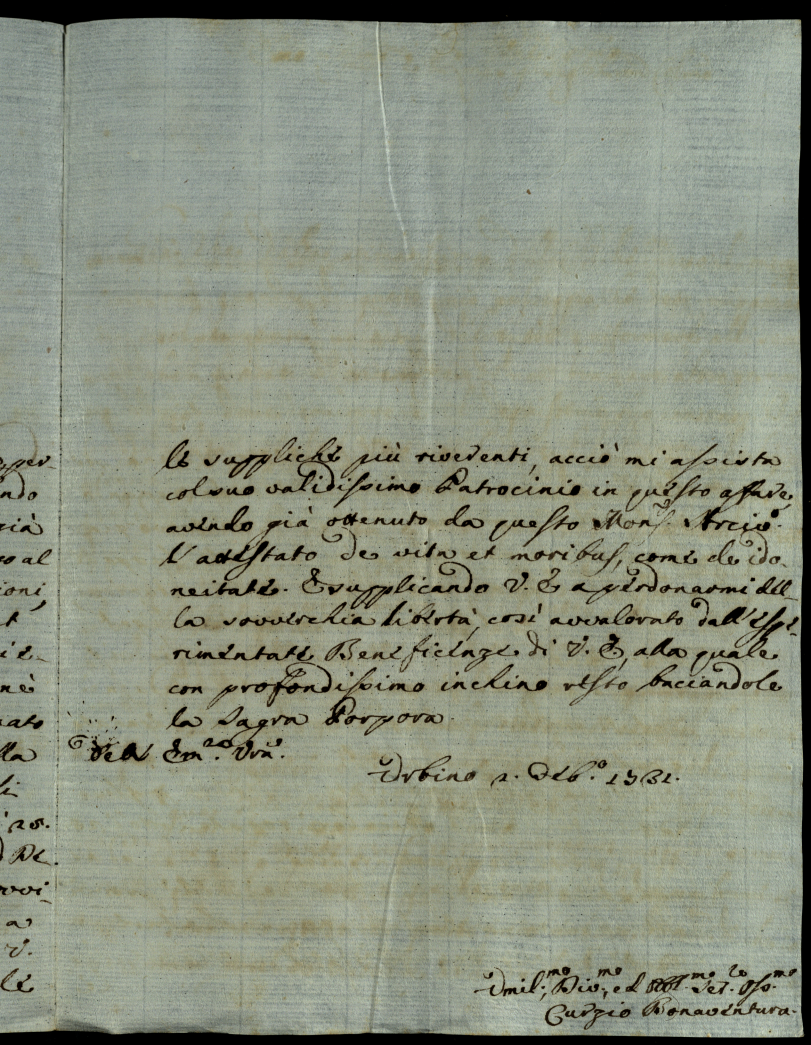 le suppliche più riverenti, acciò mi assista
col suo validissimo Patrocinio in questo affare,
avendo già ottenuto da questo Mons.r Arciv.o
l'attestato de vita et moribus, come de ido-
neitate. E supplicando V. E. a perdonarmi del-
la soverchia libertà, così avvalorato dall'espe-
rimentate Beneficenze di V. E, alla quale
con profondissimo inchino resto baciandole
la Sagra Porpora.
Dell' Em.za Vra.
Urbino 2. Feb.o 1731.
Umil.mo, Div.mo, ed Obl.mo Ser.re Oss.mo
Curzio Bonaventura.
per-
ndo
già
so al
ioni,
et
nè
nato
lla
di
20.
De-
rovi-
a
V.
le